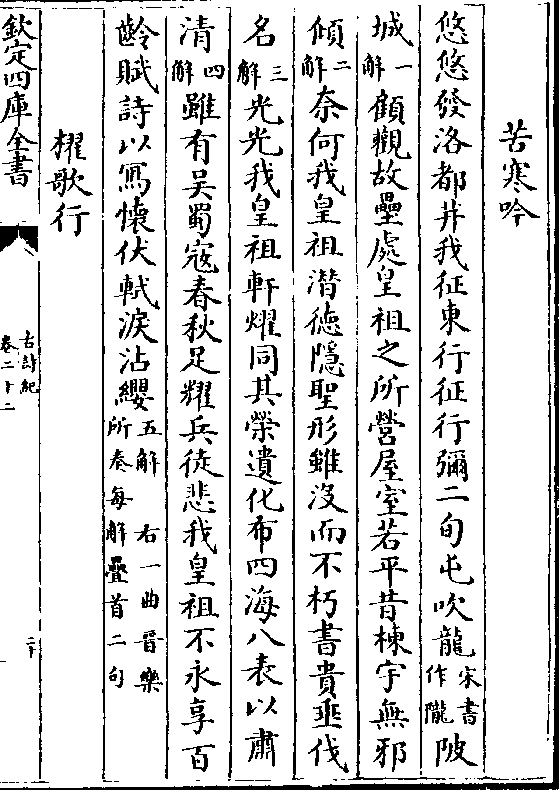 苦寒吟
悠悠發洛都并我征東行征行彌二旬屯吹龍宋書作隴陂
城一解顧觀故壘處皇祖之所營屋室若平昔棟宇無邪
傾二解奈何我皇祖潛德隱聖形雖沒而不朽書貴垂伐
名三解光光我皇祖軒耀同其榮遺化布四海八表以肅
清四解雖有吳蜀寇春秋足耀兵徒悲我皇祖不永享百
齡賦詩以寫懷伏軾淚沾纓五解右一曲晉樂所奏每解疊首二句
櫂歌行
欽定四庫全書
古詩紀
卷二十二